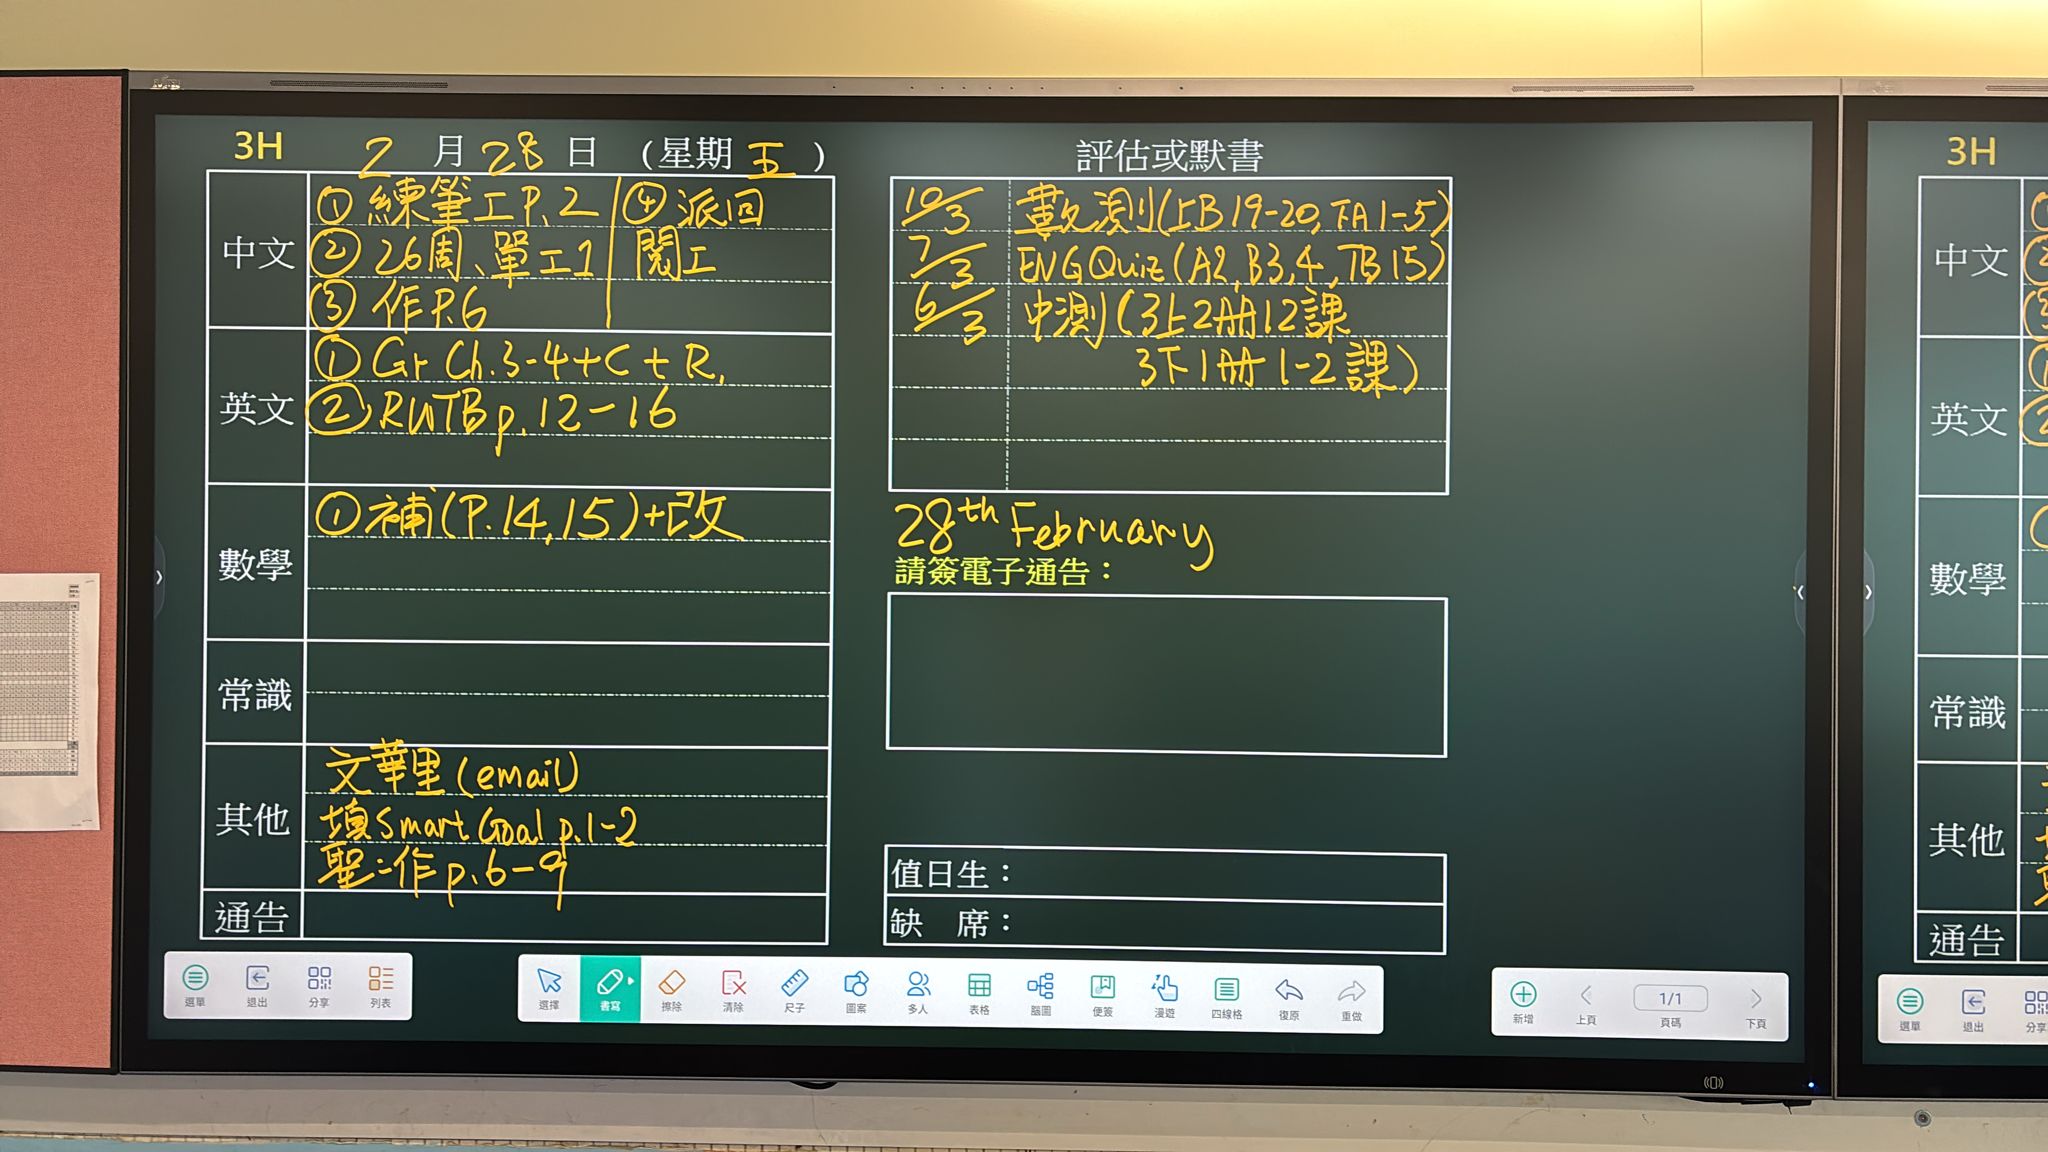 3H 2月28日（星期五）
中文
① 練筆工P.2
② 26周、單工1
③ 作P.6
④ 派回
閱工
英文
① Gr Ch.3-4+C+R,
② RWTB p.12-16
數學
① 補(P.14,15)+改
常識
其他
文華里(email)
填Smart Goal p.1-2
聖:作p.6-9
通告
評估或默書
10/3 數測(上B19-20,下A1-5)
7/3 ENG Quiz(A2,B3,4,TB15)
6/3 中測(3上2冊12課
3下1冊1-2課)
28th February
請簽電子通告：
值日生：
缺 席：
選單 退出 分享 列表
選擇 書寫 擦除 清除 尺子 圖案 多人 表格 腦圖 便簽 漫遊 四線格 復原 重做
新增 上頁 1/1 頁碼 下頁
3H
中文
英文
數學
常識
其他
通告
選單 退出 分享